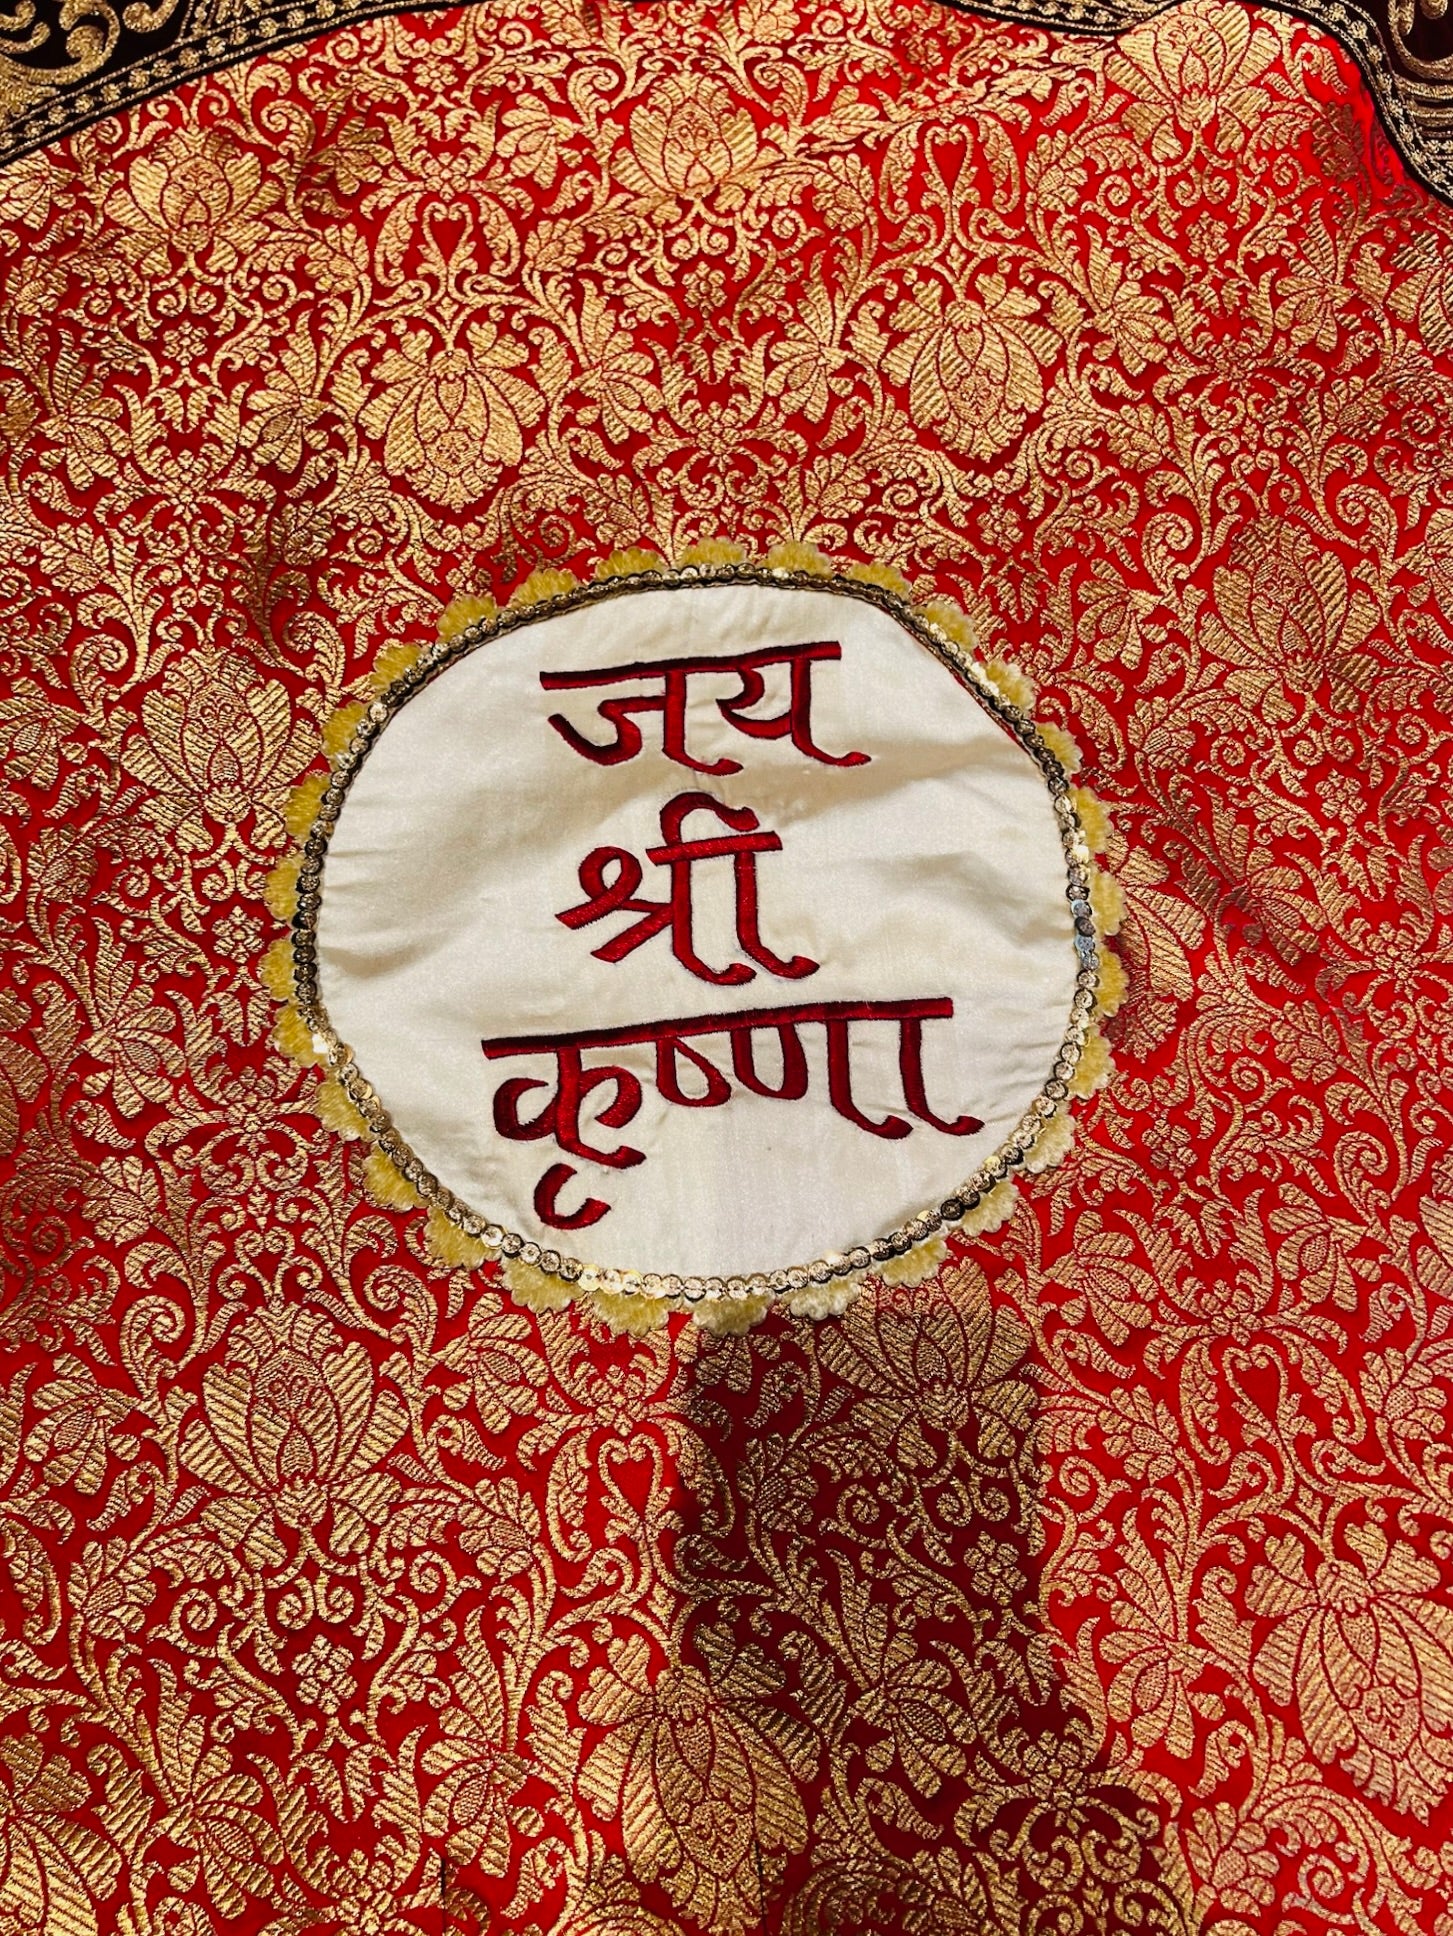 जय
श्री
कृष्णा